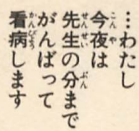 …わたし
今夜は
先生の分まで
がんばって
看病します